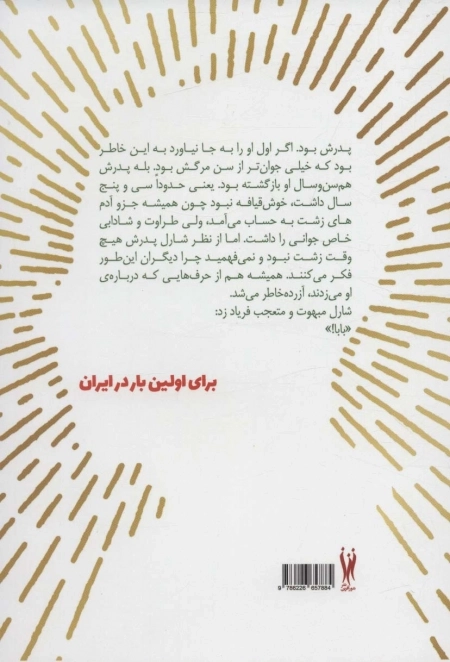 پدرش بود. اگر اول او را به جا نیاورد به این خاطر
بود که خیلی جوان‌تر از سن مرگش بود. بله پدرش
هم‌سن‌وسال او بازگشته بود. یعنی حدوداً سی و پنج
سال داشت، خوش‌قیافه نبود چون همیشه جزو آدم
های زشت به حساب می‌آمد، ولی طراوت و شادابی
خاص جوانی را داشت. اما از نظر شارل پدرش هیچ
وقت زشت نبود و نمی‌فهمید چرا دیگران این‌طور
فکر می‌کنند. همیشه هم از حرف‌هایی که درباره‌ی
او می‌زدند، آزرده‌خاطر می‌شد.
شارل مبهوت و متعجب فریاد زد:
«بابا!»
برای اولین بار در ایران
9 786226 657884